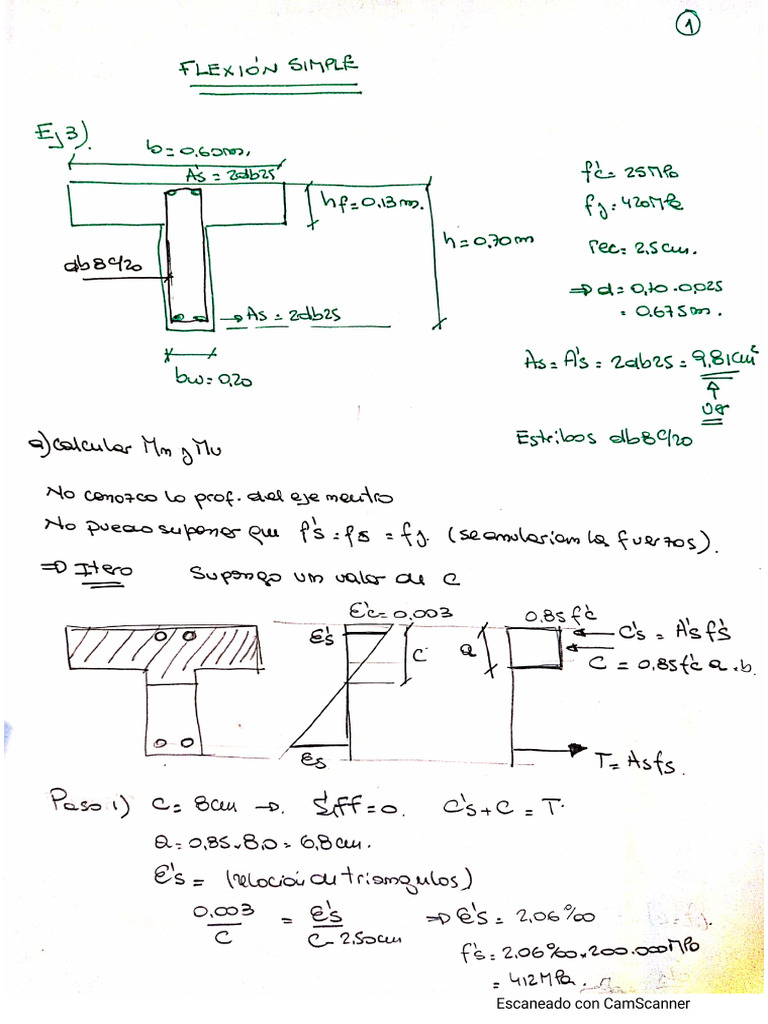 1
FLEXIÓN SIMPLE
Ej 3).
b = 0,60m.
A's = 2db25
hf = 0.13m.
h = 0,70m
db8c/20
→ As = 2db25
bw = 0,20
f'c = 25MPa
fy = 420MPa
rec: 2,5cm.
⇒ d = 0,70 - 0,025
= 0.675m.
As = A's = 2db25 = 9,81cm²
↑
ver
Estribos db8c/20
a) calcular Mn y Mu
No conozco la prof. del eje neutro
No puedo suponer que f's = fs = fy. (se anularían las fuerzas).
⇒ Itero Supongo un valor de c
Ɛ'c = 0,003
0.85f'c
Ɛ's
c
a
C's = A's f's
C = 0.85f'c a . b.
Ɛs
T = As fs.
Paso 1) C = 8cm → Σ ff = 0. C's + C = T.
a = 0,85 . 8,0 = 6,8cm.
Ɛ's = (relación de triangulos)
0.003/C = Ɛ's/C - 2.50cm ⇒ Ɛ's = 2,06‰
f's = 2.06‰ . 200.000MPa
= 412MPa.
Escaneado con CamScanner